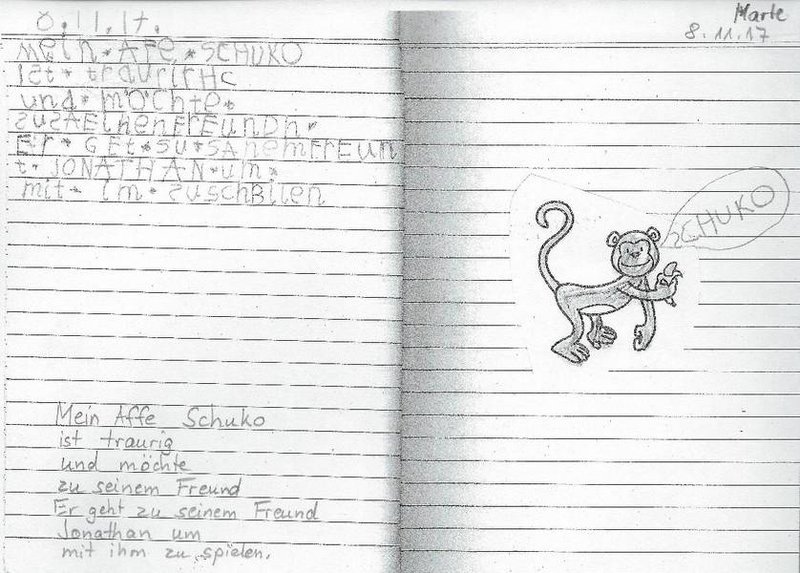 8.11.17.
mein * AFE * SCHUKO
ISt * traurirHC
und * mÖchte *
zuSAEihenFREUNDn *
Er * GEt * SU * SAnemFREUN
t * JONATHAN * um *
mit * Im * zuschBilen
Mein Affe Schuko
ist traurig
und möchte
zu seinem Freund
Er geht zu seinem Freund
Jonathan um
mit ihm zu spielen.
Marle
8.11.17
SCHUKO